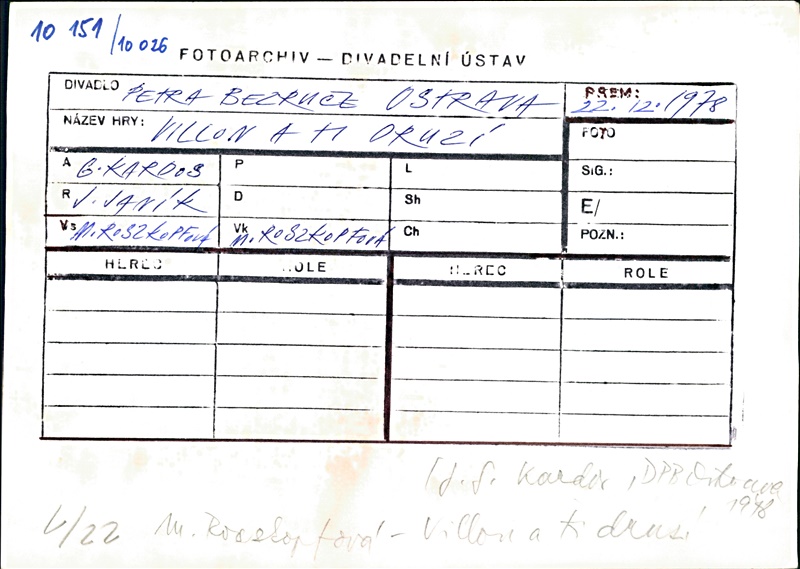 10 151 / 10 026
FOTOARCHIV — DIVADELNÍ ÚSTAV
DIVADLO PETRA BEZRUČE OSTRAVA PREM: 22. 12. 1978
NÁZEV HRY: VILLON A TI DRUZÍ FOTO
A G. KARDOS P L SIG.:
R J. JANÍK D Sh E/
Vs M. ROSZKOPFOVÁ Vk M. ROSZKOPFOVÁ Ch POZN.:
HEREC ROLE HEREC ROLE
1978
4/22 M. Roszkopfová - Villon a ti druzí